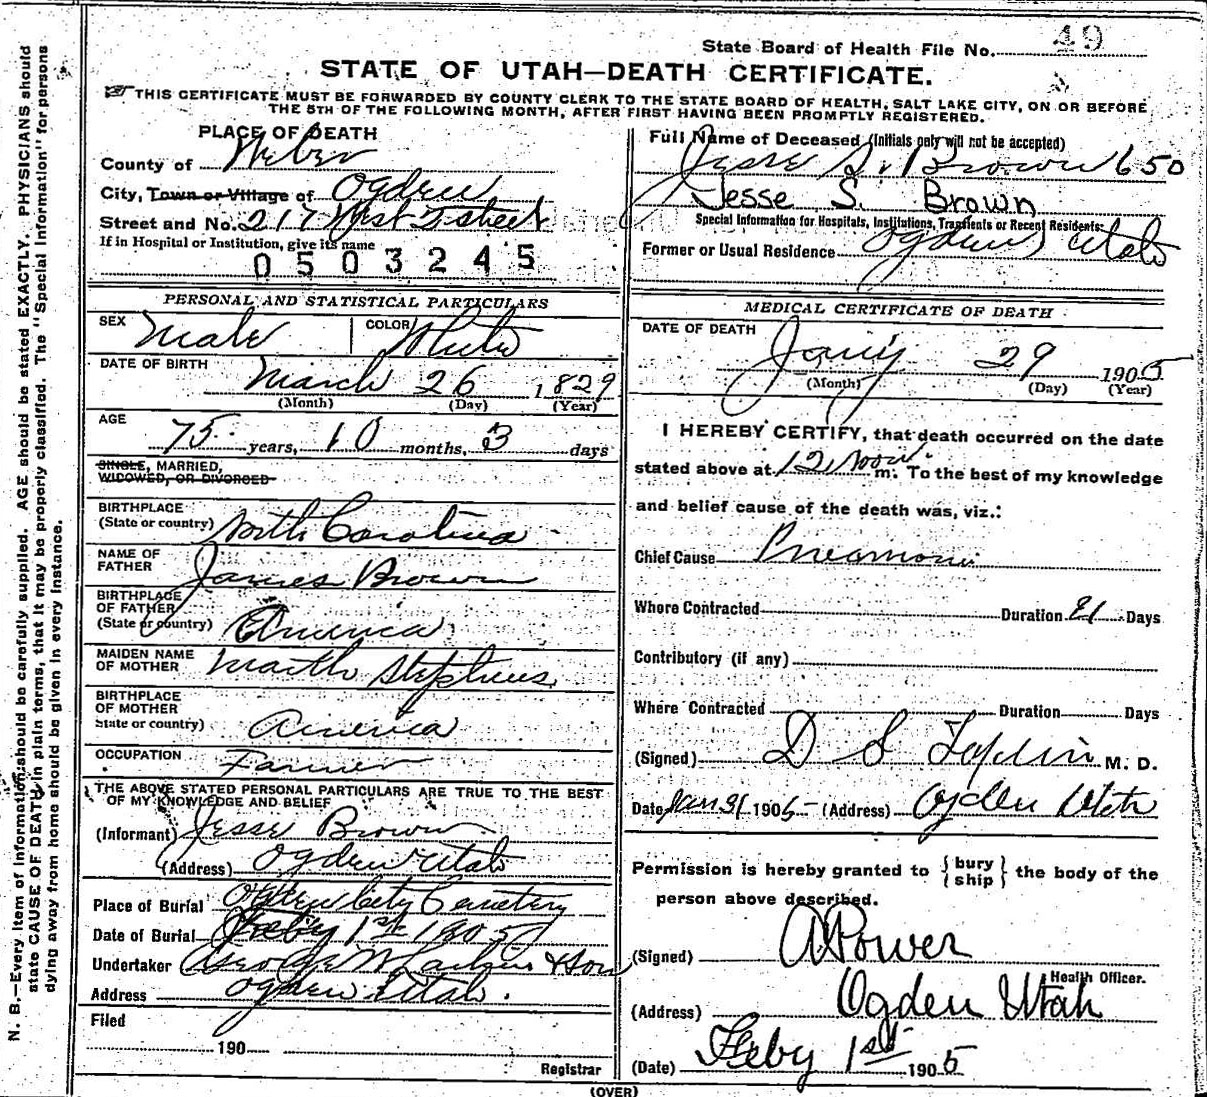 State Board of Health File No. 49
STATE OF UTAH—DEATH CERTIFICATE.
THIS CERTIFICATE MUST BE FORWARDED BY COUNTY CLERK TO THE STATE BOARD OF HEALTH, SALT LAKE CITY, ON OR BEFORE
THE 5TH OF THE FOLLOWING MONTH, AFTER FIRST HAVING BEEN PROMPTLY REGISTERED.
PLACE OF DEATH
County of Weber
City, Town or Village of Ogden
Street and No. 217 West 2 street
If in Hospital or Institution, give its name
0503245
Full Name of Deceased (Initials only will not be accepted)
Jesse S. Brown 650
Jesse S. Brown
Special Information for Hospitals, Institutions, Transients or Recent Residents:
Former or Usual Residence Ogden Utah
PERSONAL AND STATISTICAL PARTICULARS
SEX Male COLOR White
DATE OF BIRTH
March 26 1829
(Month) (Day) (Year)
AGE
75 years, 10 months, 3 days
SINGLE, MARRIED,
WIDOWED, OR DIVORCED
BIRTHPLACE
(State or country) North Carolina
NAME OF
FATHER James Brown
BIRTHPLACE
OF FATHER
(State or country) America
MAIDEN NAME
OF MOTHER Martha Stephens
BIRTHPLACE
OF MOTHER
State or country) America
OCCUPATION Farmer
THE ABOVE STATED PERSONAL PARTICULARS ARE TRUE TO THE BEST
OF MY KNOWLEDGE AND BELIEF
(Informant) Jesse Brown
(Address) Ogden Utah
Place of Burial Ogden City Cemetery
Date of Burial Feby 1st 1905
Undertaker George W Larkin & Son
Address Ogden Utah.
Filed
190
Registrar
MEDICAL CERTIFICATE OF DEATH
DATE OF DEATH
Jany 29 1905
(Month) (Day) (Year)
I HEREBY CERTIFY, that death occurred on the date
stated above at 12 Noon m. To the best of my knowledge
and belief cause of the death was, viz.:
Chief Cause Pneamonia
Where Contracted Duration 21 Days
Contributory (if any)
Where Contracted Duration Days
(Signed) D S M. D.
Date Jan 31 1905 (Address) Ogden Utah
Permission is hereby granted to { bury
ship } the body of the
person above described.
(Signed) A Power
Health Officer.
(Address) Ogden Utah
(Date) Feby 1st 1905
(OVER)
N. B.—Every item of information should be carefully supplied. AGE should be stated EXACTLY. PHYSICIANS should
state CAUSE OF DEATH in plain terms, that it may be properly classified. The "Special Information" for persons
dying away from home should be given in every instance.